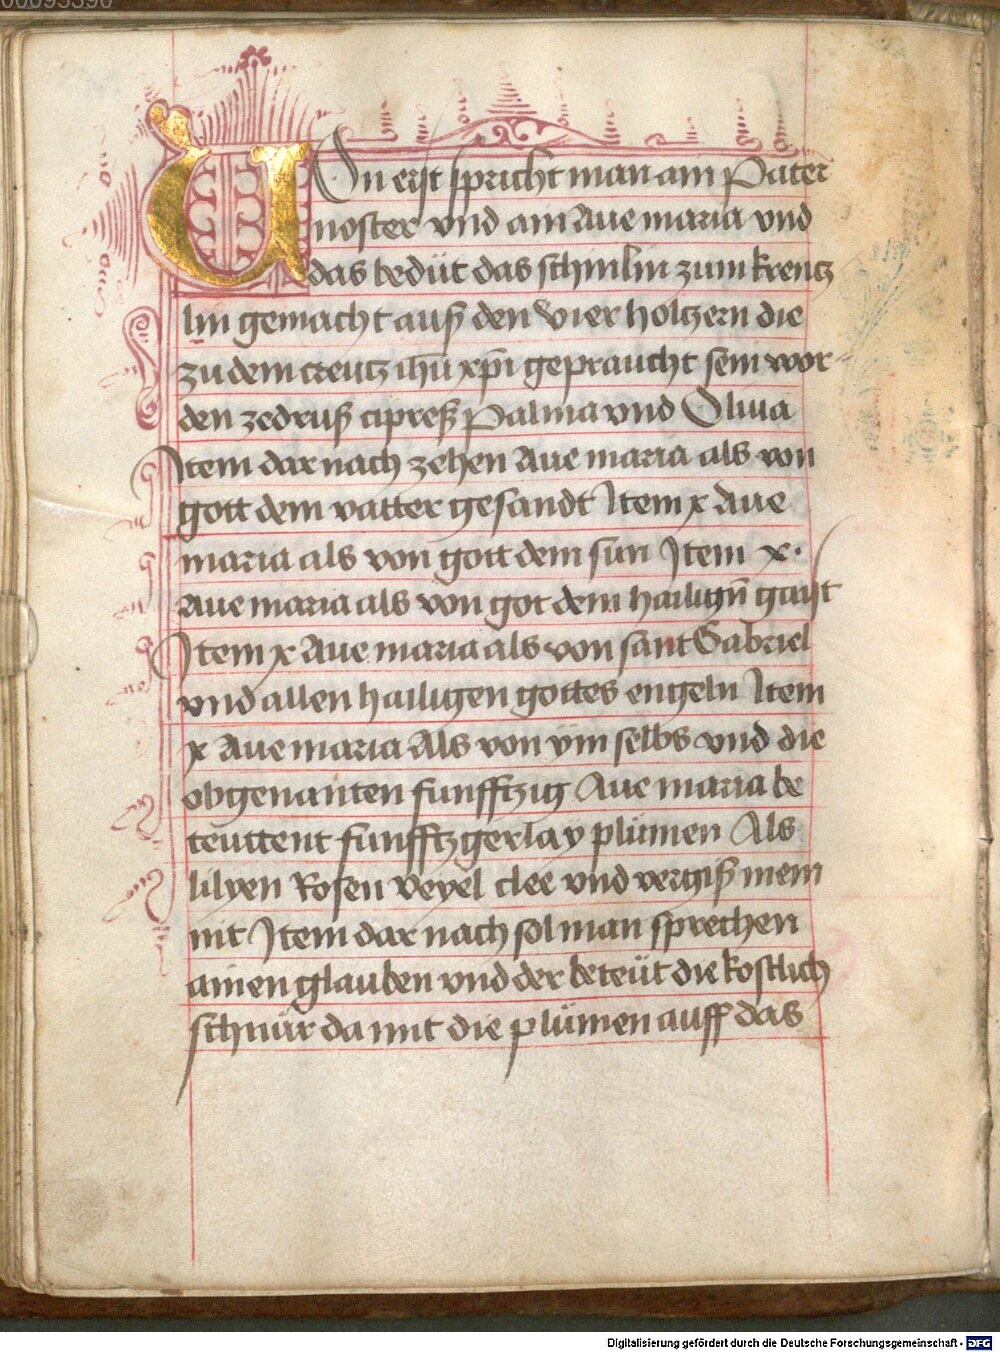 00095390
VOn erst spricht man ain Pater
noster vnd ain Aue maria vnd
das bedüt das schinlin zum krentz
lin gemacht auß den vier holtzern die
zu dem creutz ihū xp̄i gepraucht sein wor
den zedruß cipreß Palma vnd Oliua
Item dar nach zehen Aue maria als von
gott dem vatter gesandt Item x Aue
maria als von gott dem sun Item x·
Aue maria als von got dem hailigū gaist
Item x Aue maria als von sant Gabriel
vnd allen hailigen gottes engeln Item
x Aue maria Als von ym selbs vnd die
obgenanten funfftzig Aue maria be
teuttent funfftzgerlay plümen Als
lilyen Rosen veyel clee vnd vergiß mein
nit Item dar nach sol man sprechen
ainen glauben vnd der beteüt die kostlich
schnür da mit die plümen auff das
Digitalisierung gefördert durch die Deutsche Forschungsgemeinschaft - DFG